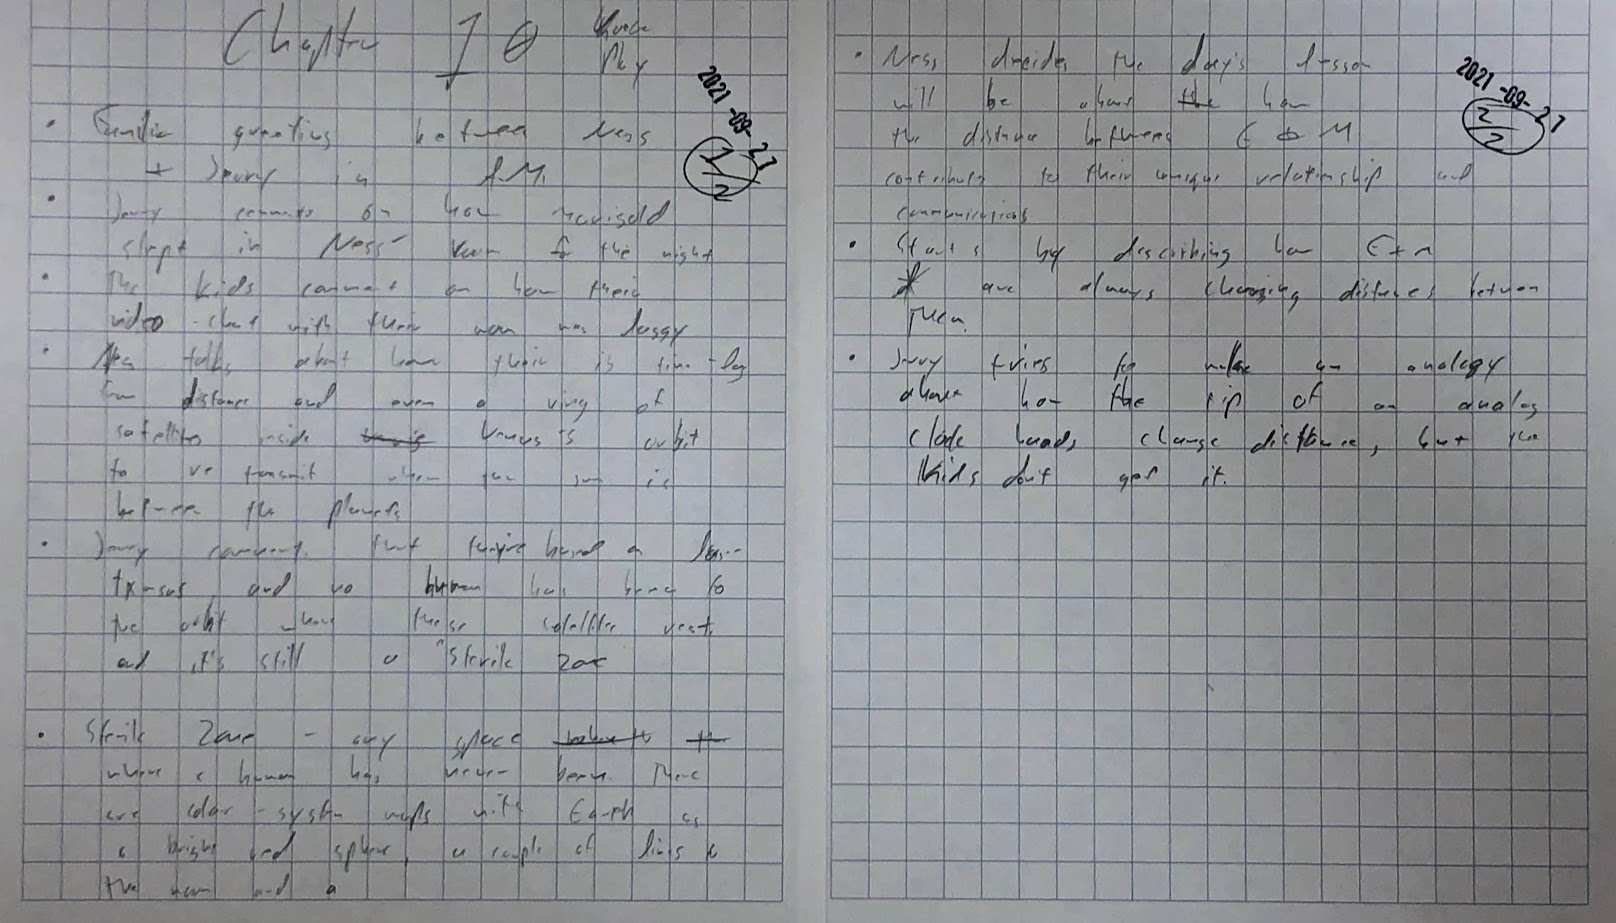 Chapter 10
2021-09-27
1/2
• Familiar greetings between Ness
+ Jerry in A.M.
• Jerry comments on how Marigold
slept in Ness' room for the night
• The kids comment on how their
video-chat with their mom was laggy
• Ness talks about how their is time-lag
from distance and even a ring of
satellites inside Venus's orbit
to retransmit when the sun is
between the planets
• Jerry comments that based on
and no human has been to
the orbit where these satellites rest.
and it's still a "Sterile Zone
• Sterile Zone - any space
where a human has never been. There
are solar-system maps with Earth as
a bright red sphere, a couple of lines to
the moon and a
2021-09-27
2/2
• Ness decides the day's lesson
will be about the how
the distance between E & M
contributes to their unique relationship and
communications
• Starts by describing how E + M
are always changing distances between
them.
• Jerry tries to make an analogy
about how the tip of an analog
clock hands change distance, but the
kids don't get it.